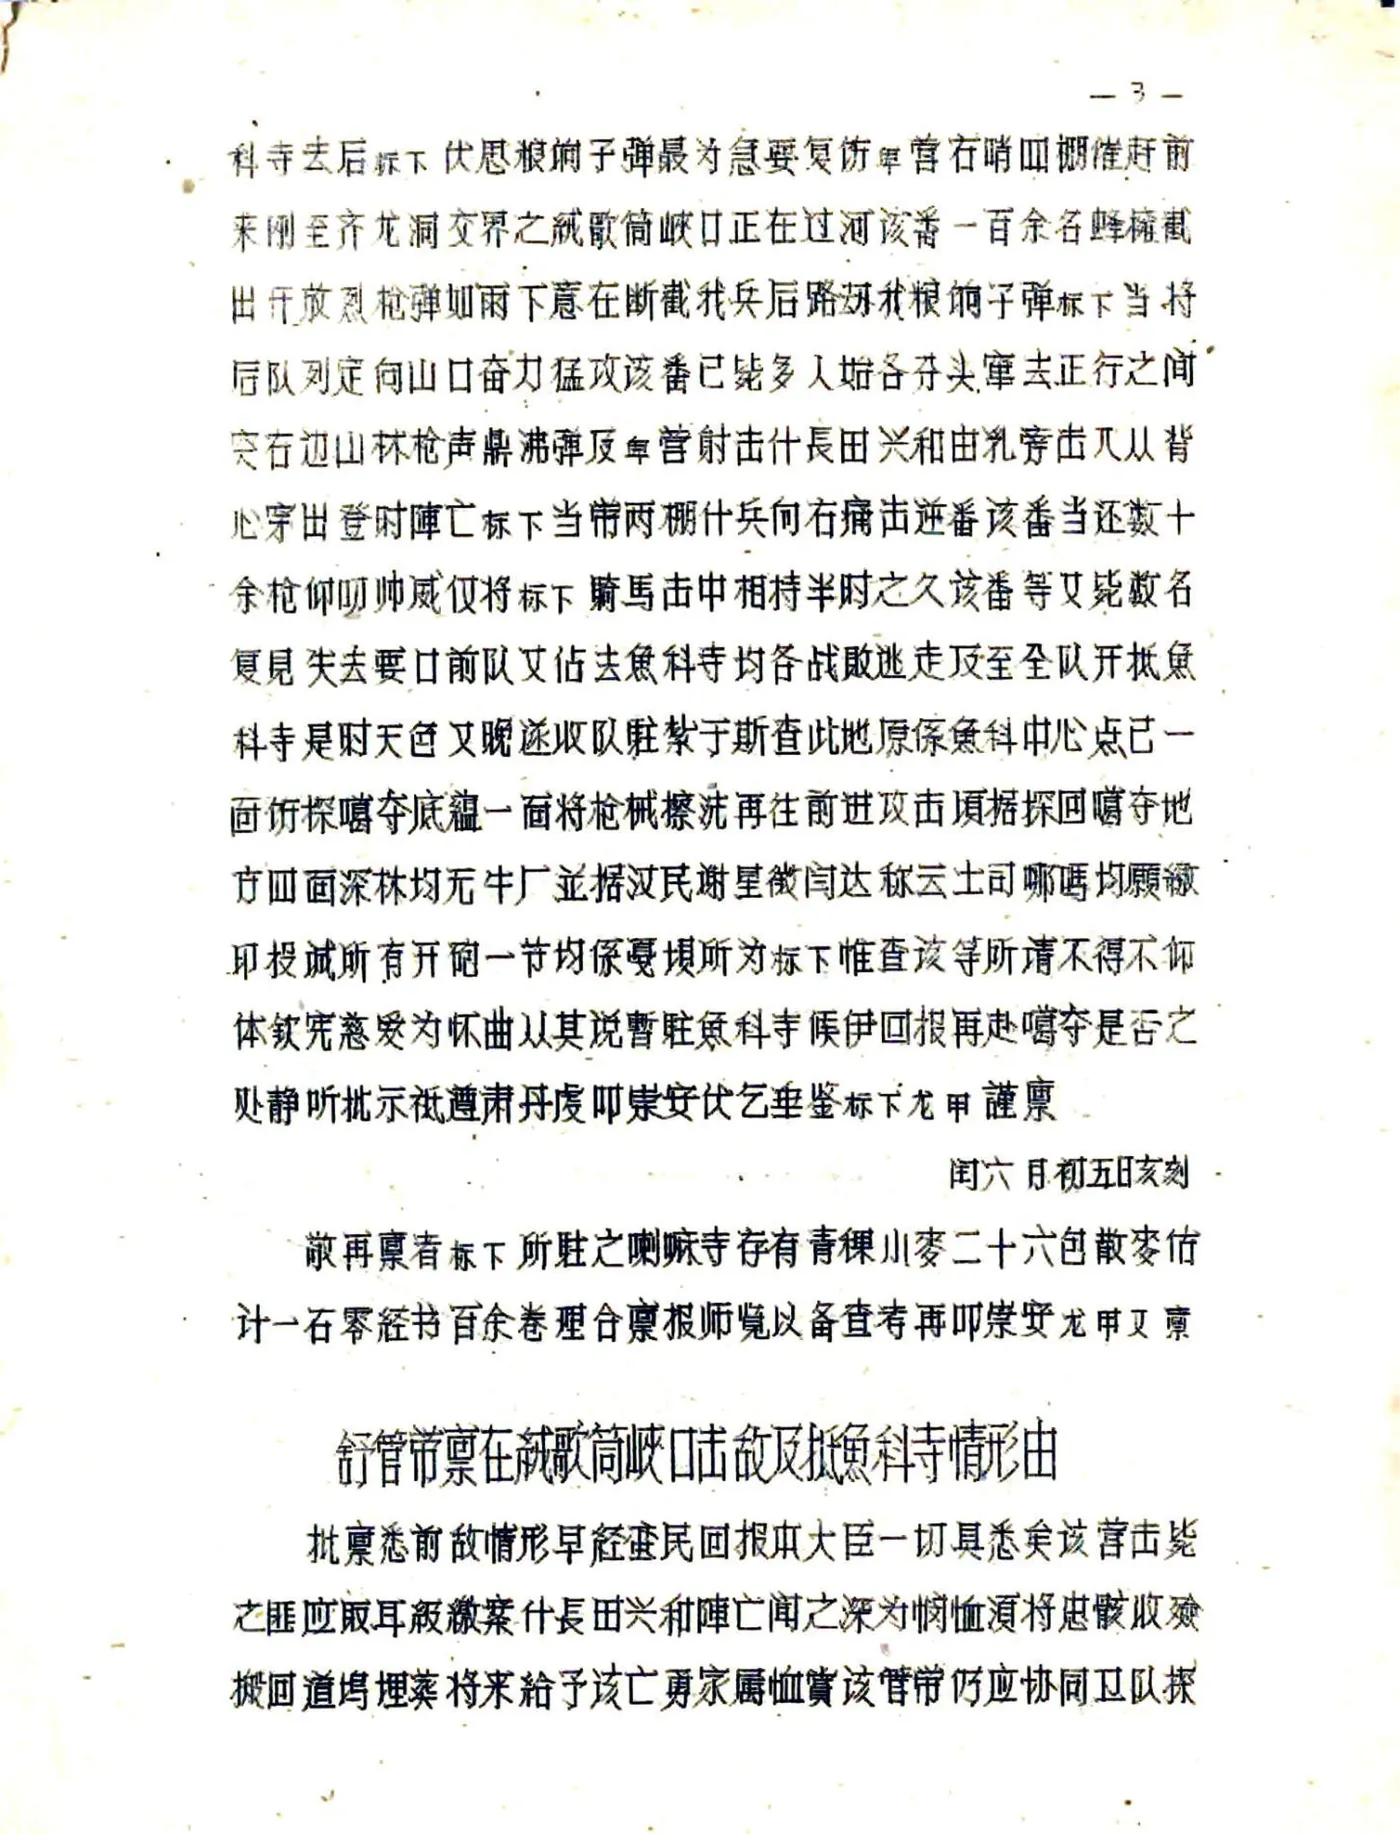 — 3 —
科寺去后标下伏思粮饷子弹最为急要复饬卑营右哨四棚催赶前
来刚至齐龙洞交界之絨歌筒峽口正在过河该番一百余名蜂擁截
出开放烈枪弹如雨下意在断截我兵后路劫我粮饷子弹标下当将
后队列定向山口奋力猛攻该番已毙多人始各分头窜去正行之间
突右边山林枪声鼎沸弹及卑营射击什長田兴和由乳旁击入从背
心穿出登时陣亡标下当带两棚什兵向右痛击逆番该番当还数十
余枪仰叨帅威仅将标下騎馬击中相持半时之久该番等又毙数名
复見失去要口前队又佔去魚科寺均各战敗逃走及至全队开抵魚
科寺是时天色又晚遂收队駐紮于斯查此地原係魚科中心点已一
面饬探噶夺底蕴一面将枪械擦洗再往前进攻击頃据探回噶夺地
方四面深林均无牛厂並据汉民谢星徵闫达称云土司哪嗎均願繳
印投诚所有开砲一节均係戞垻所为标下惟查该等所请不得不仰
体钦宪慈爱为怀曲从其说暫駐魚科寺候伊回报再赴噶夺是否之
处静听批示祗遵肃丹虔叩崇安伏乞垂鉴标下龙甲謹禀
闰六月初五日亥刻
敬再禀者标下所駐之喇嘛寺存有青稞小麥二十六包散麥估
计一石零経书百余卷理合禀报师覧以备查考再叩崇安龙甲又禀
舒管带禀在絨歌筒峽口击敌及抵魚科寺情形由
批禀悉前敌情形早経蛮民回报本大臣一切具悉矣该营击毙
之匪应取耳級繳案什長田兴和陣亡闻之深为悯恤須将忠骸收殮
搬回道坞埋葬将来給予该亡勇家属恤賞该管带仍应协同卫队探